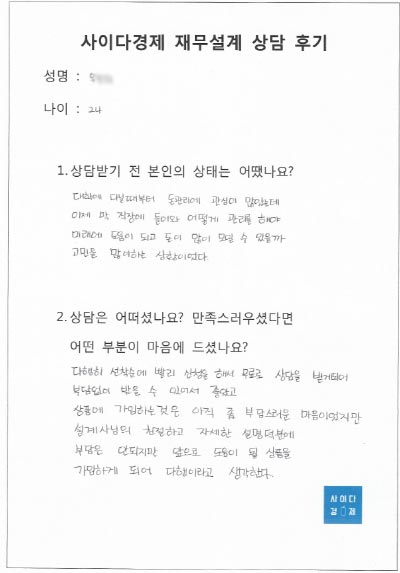 사이다경제 재무설계 상담 후기
성명 :
나이 : 24
1. 상담받기 전 본인의 상태는 어땠나요?
대학에 다닐때부터 돈관리에 관심이 많았는데
이제 막 직장에 들어와 어떻게 관리를 해야
미래에 도움이 되고 돈이 많이 모일 수 있을까
고민을 많이하는 상황이었다
2. 상담은 어떠셨나요? 만족스러우셨다면
어떤 부분이 마음에 드셨나요?
다행히 선착순에 빨리 신청을 해서 무료로 상담을 받게되어
부담없이 받을 수 있어서 좋았고
상품에 가입하는것은 아직 좀 부담스러운 마음이었지만
설계사님의 친절하고 자세한 설명덕분에
부담은 안되지만 앞으로 도움이 될 상품을
가입하게 되어 다행이라고 생각한다.
사이다
경제